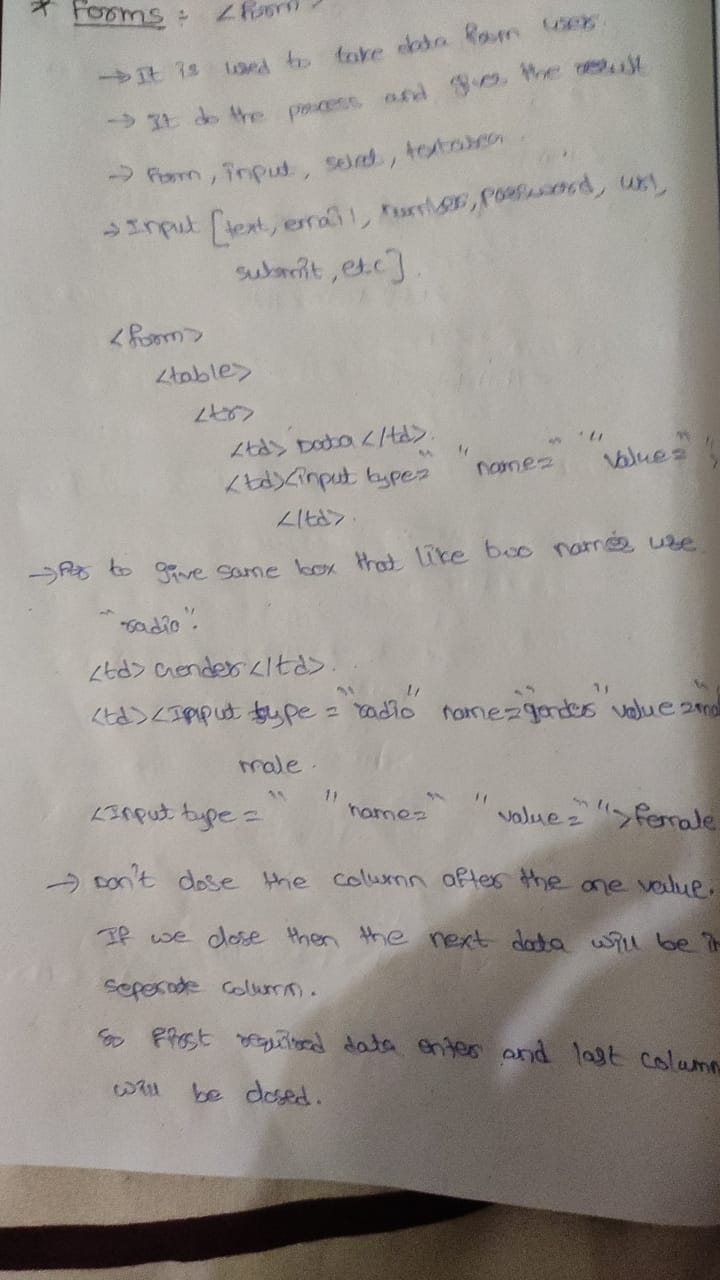 * Forms : <form>
→ It is used to take data from user.
→ It do the process and gives the result
→ Form, input, select, textarea.
→ Input [text, email, number, password, url,
submit, etc].
<form>
<table>
<tr>
<td> Data </td>.
<td><input type=" " name=" " value=" "
</td>.
→ to give same box that like two names use
"radio".
<td> Gender </td>.
<td><Input type = "radio" name="gender" value=
male.
<Input type = " " name=" " value=" ">female
→ Don't close the column after the one value.
If we close then the next data will be
seperate column.
So first required data enter and last column
will be closed.